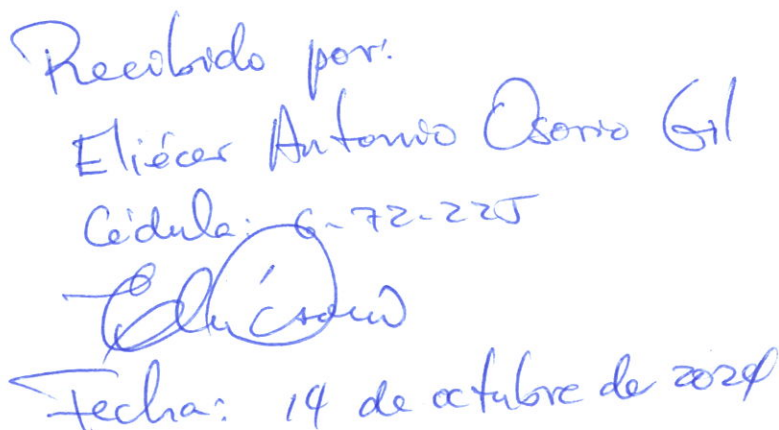 Recibido por:
Eliécer Antonio Osorio Gil
Cédula: 6-72-225
Fecha: 14 de octubre de 2024